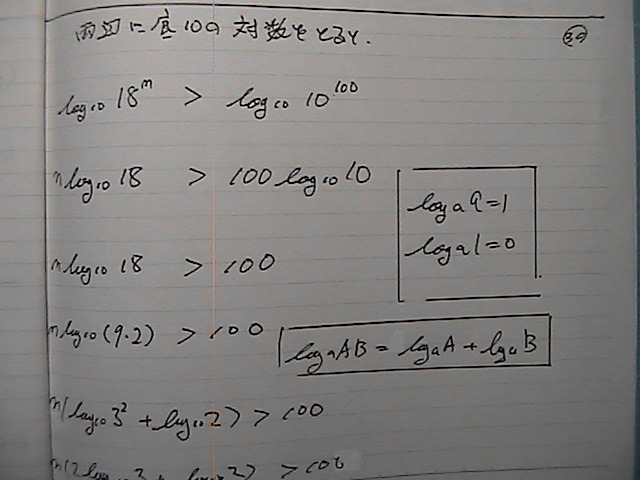 両辺に底10の対数をとると、
log₁₀ 18ⁿ > log₁₀ 10¹⁰⁰
n log₁₀ 18 > 100 log₁₀ 10
logₐ a = 1
logₐ 1 = 0
n log₁₀ 18 > 100
n log₁₀ (9・2) > 100
logₐ AB = logₐ A + logₐ B
n(log₁₀ 3² + log₁₀ 2) > 100
n(2 log₁₀ 3 + log₁₀ 2) > 100